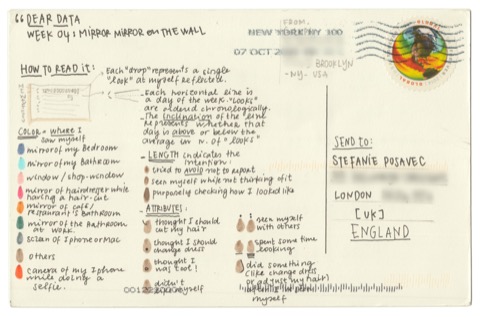 “DEAR DATA
WEEK 04: MIRROR MIRROR ON THE WALL
FROM:
NEW YORK NY 100
07 OCT 2
BROOKLYN
-NY- USA
HOW TO READ IT:
Each "drop" represents a single
"look" at myself reflected.
Each horizontal line is
a day of the week. "Looks"
are ordered chronologically.
The inclination of the line
represents whether that
day is above or below the
average in n. of "looks"
COLOR = where I
saw myself
mirror of my bedroom
mirror of my bathroom
window / shop-window
mirror of hairdresser while
having a hair-cut
mirror of café/
restaurant's bathroom
mirror of the bathroom
at work
screen of Iphone or Mac
others
camera of my Iphone
while doing a
selfie.
LENGTH indicates the
intention:
tried to AVOID not to repeat
seen myself while not thinking of it
purposely checking how I looked like
ATTRIBUTES:
thought I should
cut my hair
thought I should
change dress
thought I
was too!
didn't
myself
seen myself
with others
spent some time
looking
did something
(like change dress
or adjust my hair)
after I'd seen
myself
SEND TO:
STEFANIE POSAVEC
LONDON
[UK]
ENGLAND